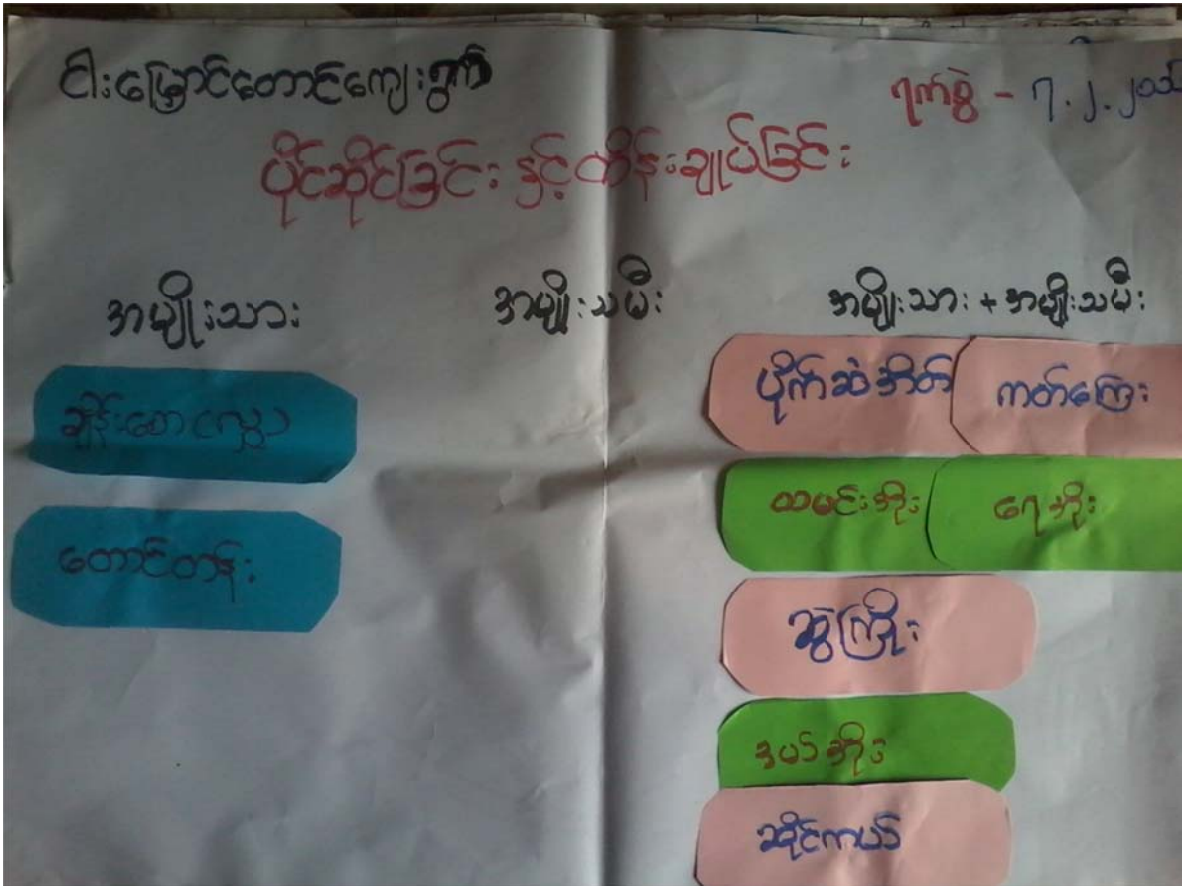 ငါးမြှောင်တောင်ကျေးရွာ
ရက်စွဲ - ၇.၂.၂၀၁
ပိုင်ဆိုင်ခြင်း နှင့် ထိန်းချုပ်ခြင်း
အမျိုးသား
အမျိုးသမီး
အမျိုးသား + အမျိုးသမီး
ပိုက်ဆံအိတ်
ကတ်ကြေး
ထမင်းအိုး
ရေအိုး
တောင်တန်း
ဆွဲကြိုး
ဒယ်အိုး
ဆိုင်ကယ်